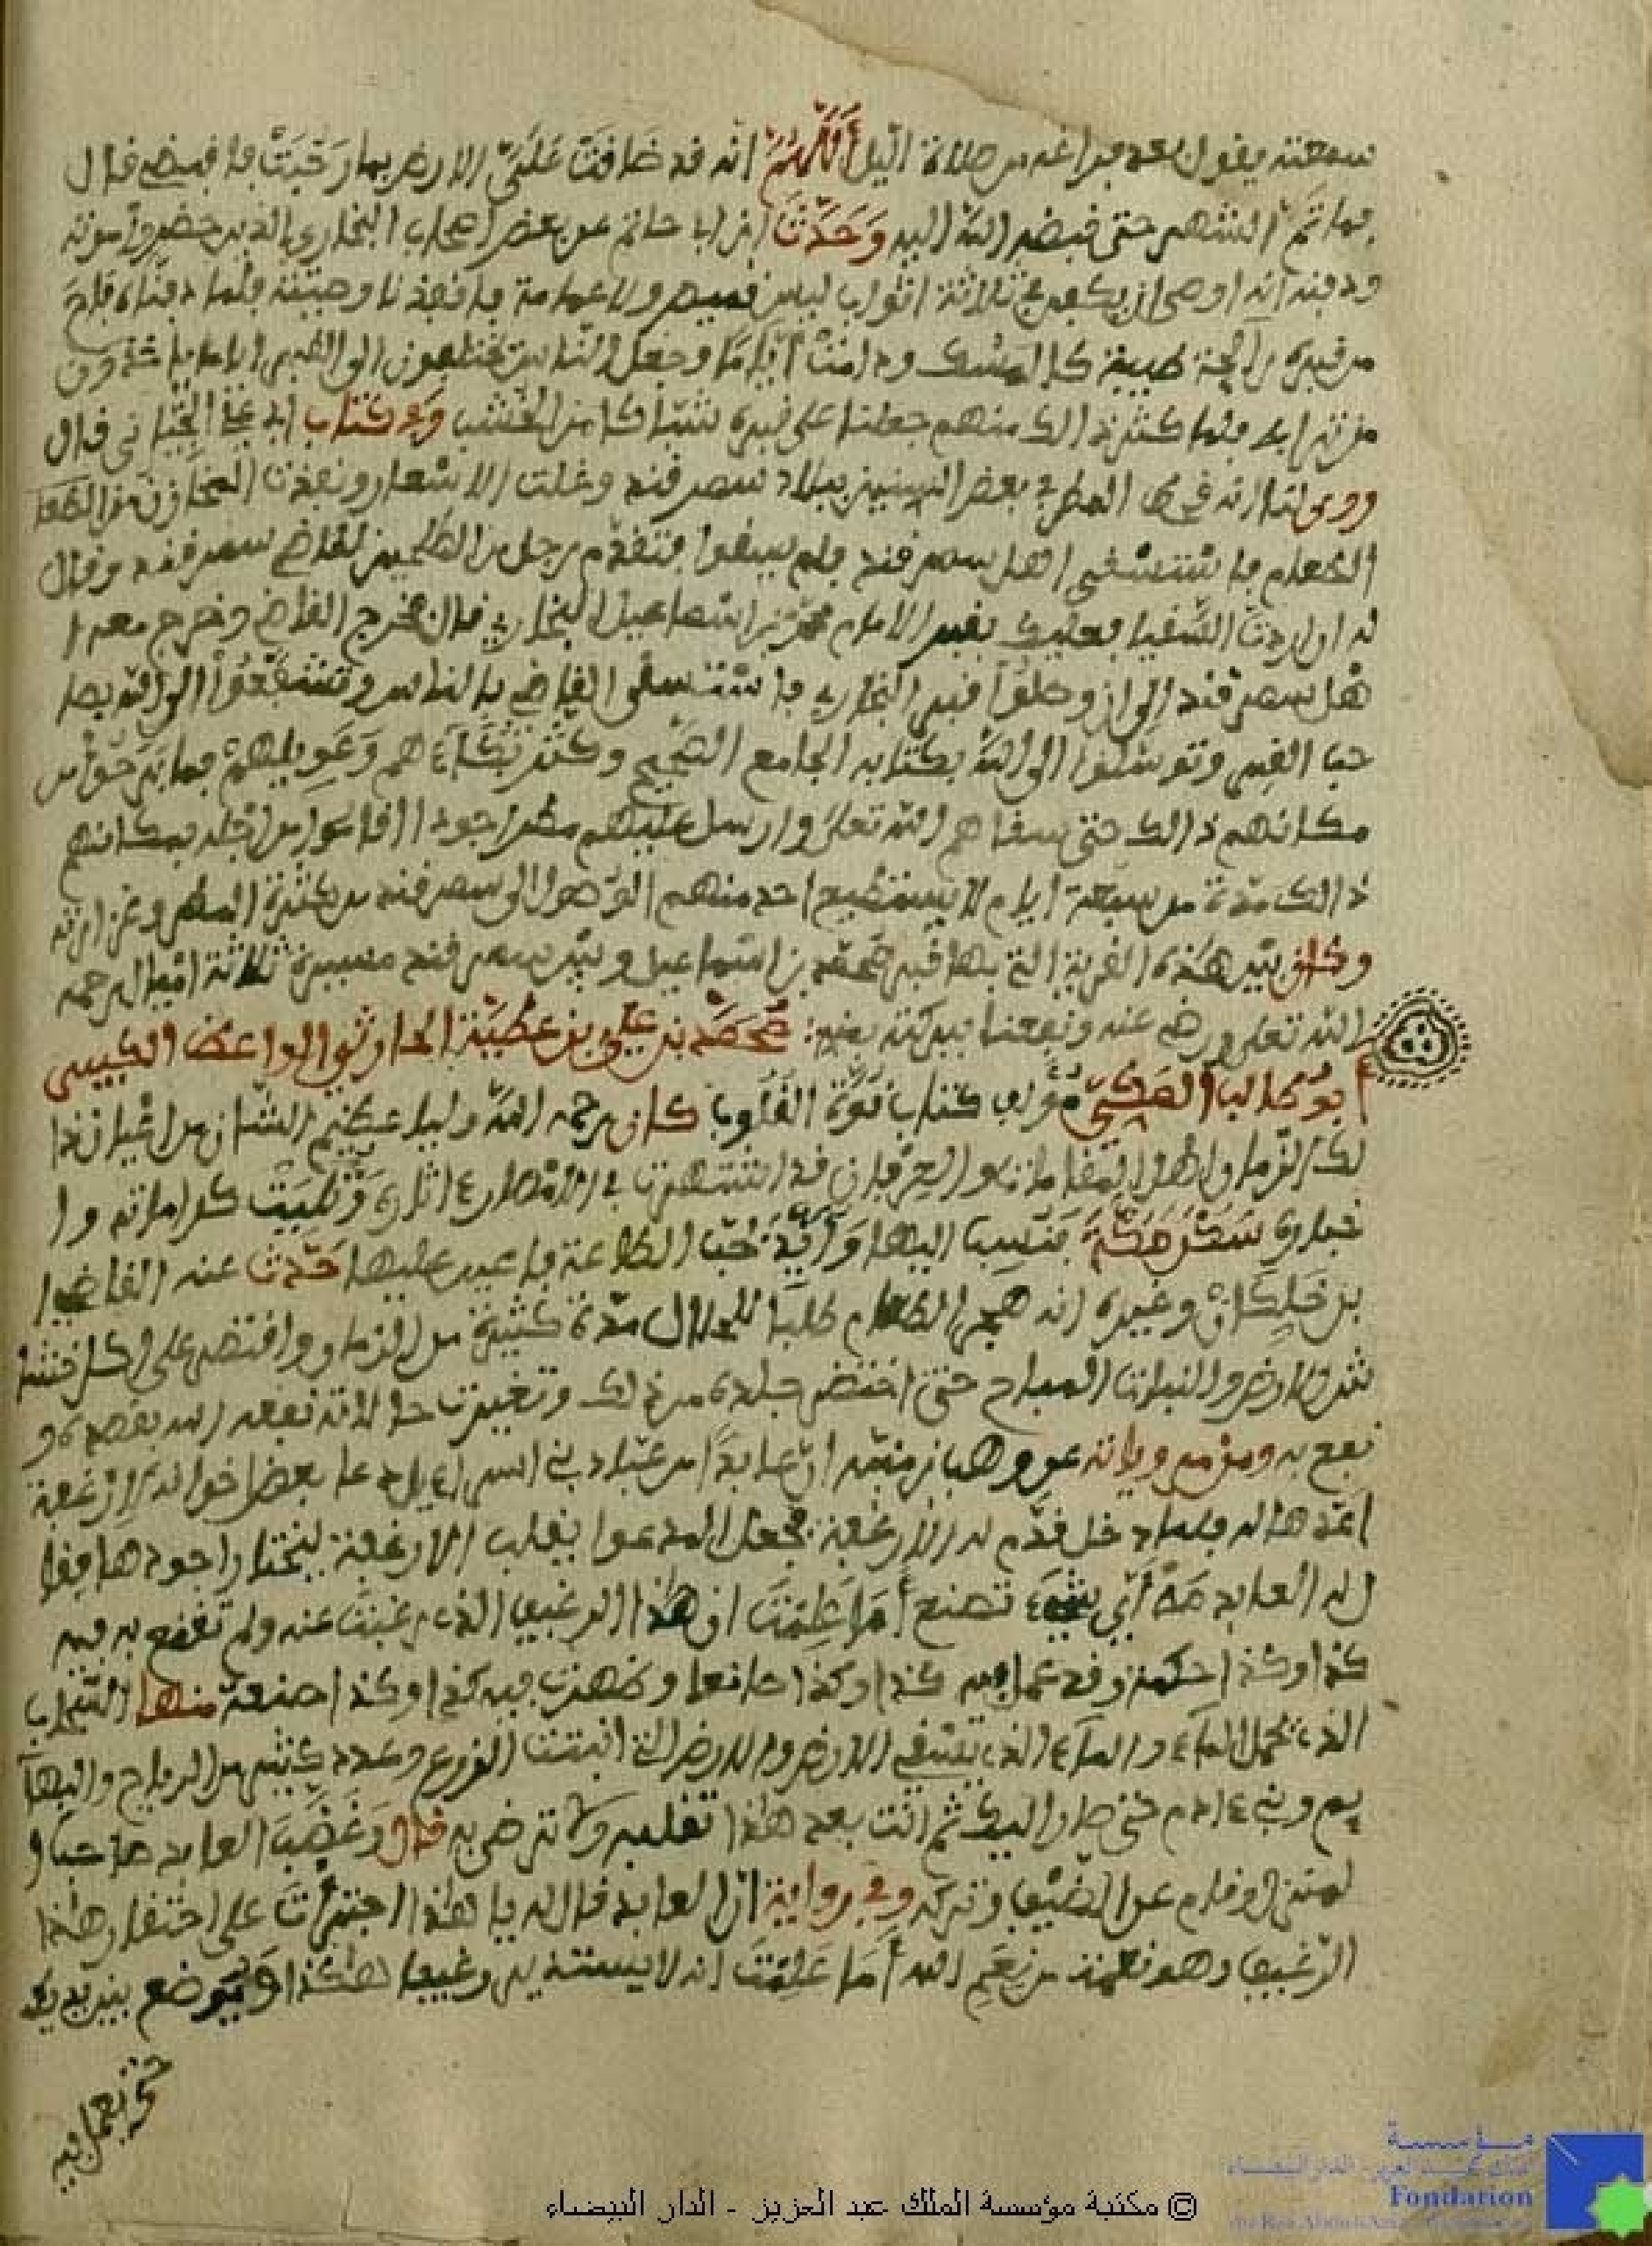 سمعته يقول بعد فراغه من صلاة اليل أللهم انه قد ضاقت علي الارض بما رحبت فاقبضني قال
فما تم الشهر حتى قبضه الله اليه وحدث ابن ابا حاتم عن بعض اصحاب البخاري الذين حضروا موته
ودفنه انه اوصى ان يكفن في ثلاثة اثواب ليس قميص ولا عمامة فانفذنا وصيته فلما دفناه فاح
من قبره رائحة طيبة كالمسك ودامت أياما وجعل الناس يختلفون الى القبر اياما ياخذون
من ترابه فلما كثر ذالك منهم جعلنا على قبره شباكا من الخشب وعن كتاب ابي علي الجياني قال
وروى لنا انه قحط المطر في بعض السنين ببلاد سمرقند وغلت الاسعار ونفذت المخازن من الطعا
الطعام فاستسقى اهل سمرقند ولم يسقوا فتقدم رجل من الصالحين لقاضي سمرقند وقال
له ان اردت السقيا فعليك بقبر الامام محمد بن اسماعيل البخاري قال فخرج القاضي وخرج معه ا
هل سمرقند الى ان وصلوا قبر البخاري فاستسقى القاضي بالناس وتشفعوا الى الله بصا
حب القبر وتوسلوا الى الله بكتابه الجامع الصحيح وكثر بكاءهم وعويلهم فما برحوا من
مكانهم ذالك حتى سقاهم الله تعلى وارسل عليهم مطرا جودا اقاموا من اجله بمكانهم
ذالك مدة من سبعة ايام لا يستطيع احد منهم الوصول الى سمرقند من كثرة المطر وغزارته
وكان بين هذه القرية التي بها قبر محمد بن اسماعيل وبين سمرقند مسيرة ثلاثة اميال رحمه
الله تعلى ورضي عنه ونفعنا ببركته بمنه: محمد بن علي بن عطية الحارثي الواعظ الكبير
أبو طالب المكي مؤلف كتاب قوة القلوب كان رحمه الله وليا عظيم الشان من اعيان ذا
لك الزمان واهل المقامات والعرفان قد اشتهرت في الامصار ءاثاره وتليت كراماته وا
خباره سكن مكة فنسب اليها وأيد حب الطاعة فاعين عليها حدث عنه القاضي ا
بن خلكان وغيره انه هجر الطعام طلبا للحلال مدة كثيرة من الزمان واقتصر على اكل خشا
ش الارض والنبات المباح حتى اخضر جلده من ذلك وتغيرت حالاته نفعه الله بقصده و
نفع به ومن مروياته عن وهب بن منبه ان عابدا من عباد بني اسراءيل دعا بعض اخوانه لارغفة
اعدها له فلما دخل قدم له الارغفة فجعل المدعوا يقلب الارغفة ليختار اجودها فقا
ل له العابد مه أي شيء تصنع أما علمت ان هذا الرغيف الذي رغبت عنه ولم تقنع به فيه
كذا وكذا حكمة وقد عمل فيه كذا وكذا صانعا وظهرت فيه كذا وكذا صنعة منها السحاب
الذي يحمل الماء والماء الذي يسقي الارض والارض التي انبتت الزرع وعدد كثير من الرياح والبها
يم وبني ءادم حتى صار اليك ثم انت بعد هذا تقلبه ولا ترضى به قال وغضب العابد صاحب ا
لمنزل وقام عن الضيف وتركه وفي رواية ان العابد قال له يا هذا اجترأت على احتقار هذا
الرغيف وهو نعمة من نعم الله أما علمت انه لا يستدير رغيف هكذا ويوضع بين يديك
حتى يعمل فيه
© مكتبة مؤسسة الملك عبد العزيز - الدار البيضاء
مؤسسة
الملك عبد العزيز - الدار البيضاء
Fondation